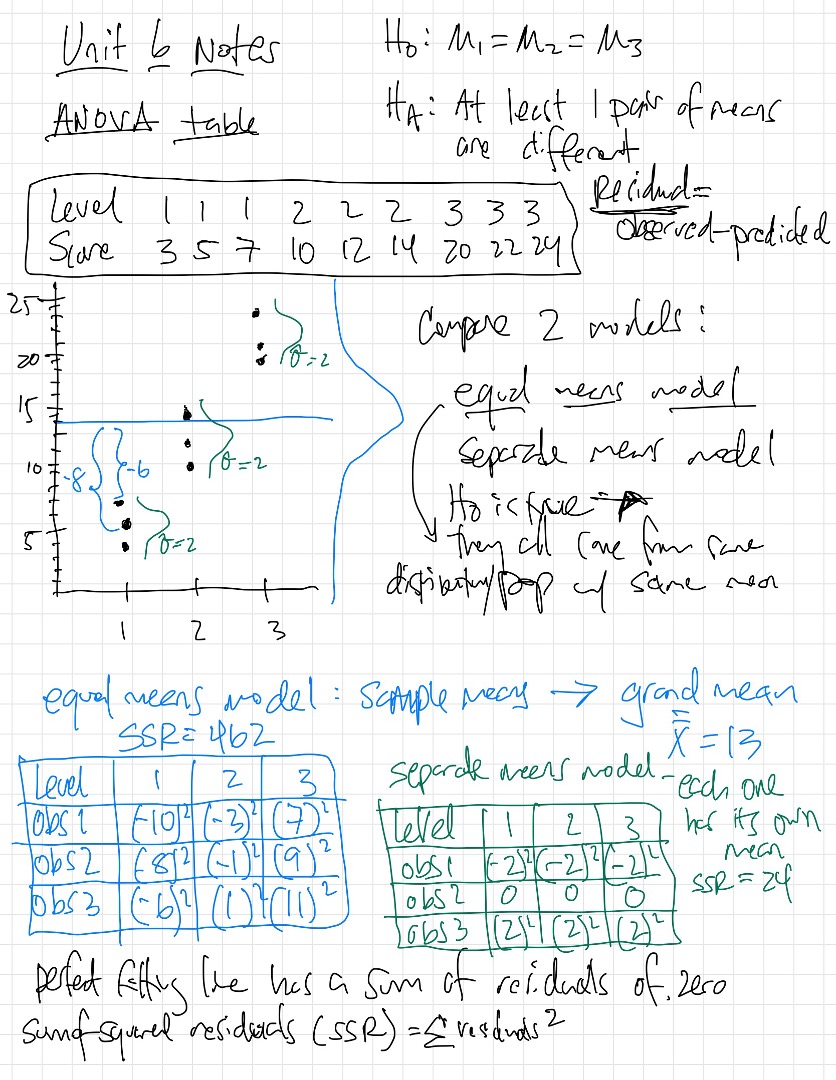 Unit 6 Notes
ANOVA table
H0: M1 = M2 = M3
HA: At least 1 pair of means
are different
Residual =
observed-predicted
Level 1 1 1 2 2 2 3 3 3
Score 3 5 7 10 12 14 20 22 24
25
20
15
10
5
1 2 3
-8
-6
σ=2
σ=2
σ=2
Compare 2 models:
equal means model
separate means model
H0 is true →
they all come from same
distribution/pop w/ same mean
equal means model: sample means → grand mean
SSR = 462
x̿ = 13
Level 1 2 3
obs1 (-10)² (-3)² (7)²
obs2 (-8)² (-1)² (9)²
obs3 (-6)² (1)² (11)²
separate means model - each one
has its own
mean
SSR = 24
Level 1 2 3
obs1 (-2)² (-2)² (-2)²
obs2 0 0 0
obs3 (2)² (2)² (2)²
perfect fitting line has a sum of residuals of zero
sum of squared residuals (SSR) = Σ residuals²